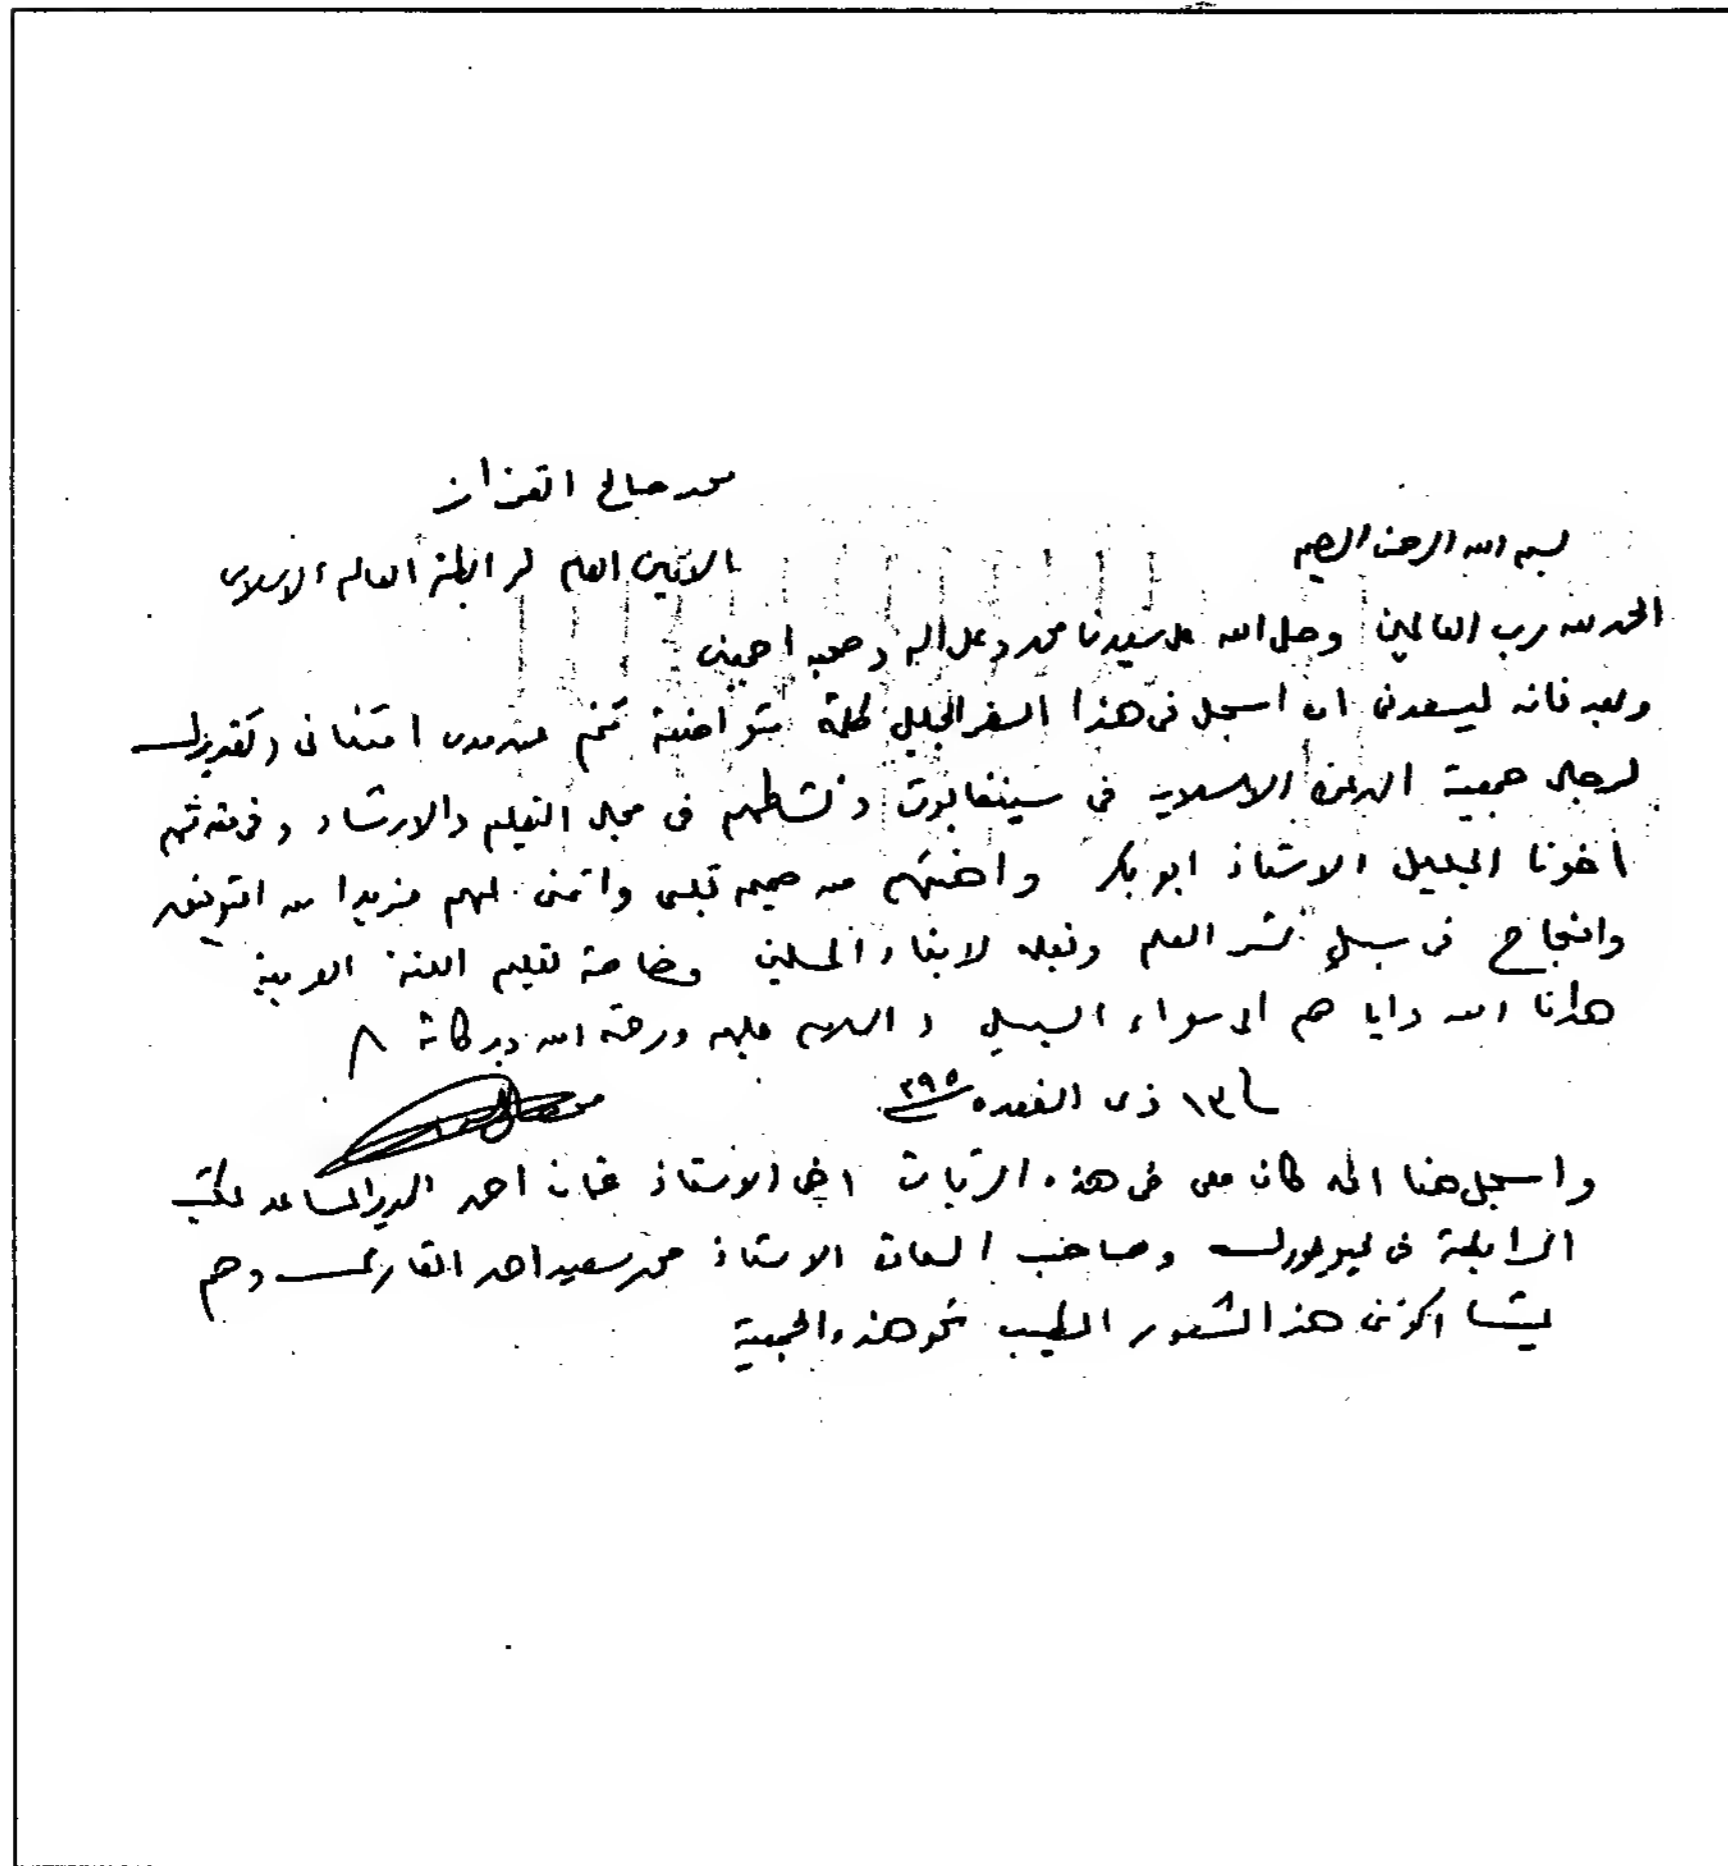 محمد صالح القزاز
الامين العام لرابطة العالم الاسلامي
بسم الله الرحمن الرحيم
الحمد لله رب العالمين وصلى الله على سيدنا محمد وعلى اله وصحبه اجمعين
وبعد فانه ليسعدنى ان اسجل فى هذا السفر الجليل كلمة متواضعة تنم عن مدى امتنانى وتقديرى
لرجال جمعية الدعوة الاسلامية فى سينغابورة ونشاطهم فى مجال التعليم والارشاد وفى مقدمتهم
اخونا الجليل الاستاذ ابو بكر واهنئهم من صميم قلبى واتمنى لهم مزيدا من التوفيق
والنجاح فى سبيل نشر العلم ونقله لابناء المسلمين وخاصة تعليم اللغة العربية
هدانا الله وايا هم الى سواء السبيل والسلام عليكم ورحمة الله وبركاته
١٣ ذى القعدة ٣٩٥
واسجل هنا انه كان معى فى هذه الزيارة اخى الاستاذ عثمان احمد المدير المساعد لمكتب
الرابطة فى نيويورك وصاحب السعادة الاستاذ محمد سعيد احمد القارى وهم
اكنى هذا الشعور الطيب نحو هذه الجمعية